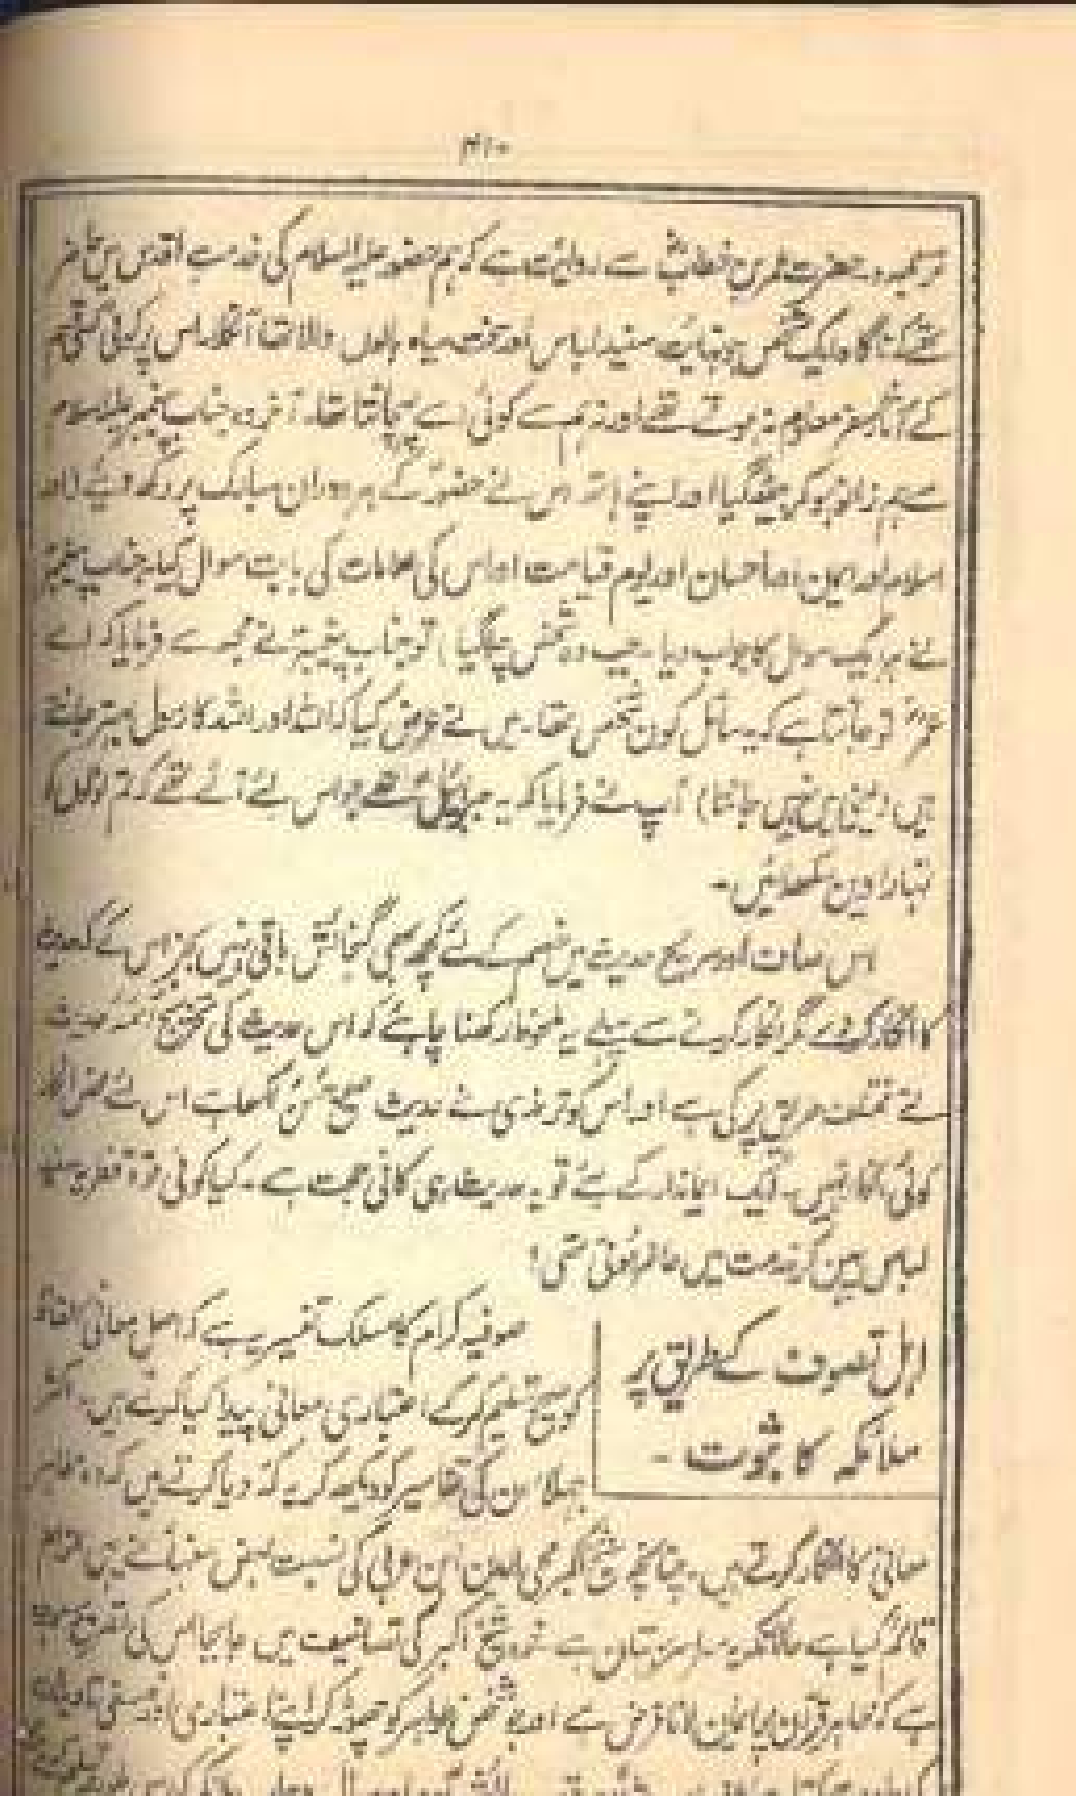 ۴۱۰
ترجمہ۔ حضرت عمر بن خطابؓ سے روایت ہے کہ ہم حضور علیہ السلام کی خدمت اقدس میں حاضر
تھے کہ ناگاہ ایک شخص جو نہایت سفید لباس اور سیاہ بالوں والا تھا آنکلا۔ اس پر کوئی
کے آثار سفر معلوم نہ ہوتے تھے اور نہ ہم سے کوئی اسے پہچانتا تھا۔ آخر وہ جناب پیغمبر علیہ السلام
سے ہم زانو ہو کر بیٹھ گیا اور اپنے ہاتھ اس نے حضورؐ کے ہر دو ران مبارک پر رکھ دیئے اور
اسلام اور ایمان اور احسان اور یوم قیامت اور اس کی علامات کی بابت سوال کیا۔ جناب پیغمبرؐ
نے ہر ایک سوال کا جواب دیا۔ جب وہ شخص چلا گیا، تو جناب پیغمبرؐ نے مجھ سے فرمایا کہ اے
عمرؓ تو جانتا ہے کہ یہ سائل کون شخص تھا۔ میں نے عرض کیا کہ اللہ اور اللہ کا رسول بہتر جانتے
ہیں (یعنی میں نہیں جانتا) آپ نے فرمایا کہ یہ جبرائیلؑ تھے جو اس لئے آئے تھے کہ تم لوگوں کو
تمہارا دین سکھلائیں۔
اس صاف اور صریح حدیث میں خصم کے لئے کچھ بھی گنجائش باقی نہیں بجز اس کے کہ حدیث
کا انکار کرے مگر انکار کرنے سے پہلے یہ ملحوظ رکھنا چاہئے کہ اس حدیث کی تخریج آئمہ حدیث
نے مختلف طریق پر کی ہے اور اس کو ترمذی نے حدیث صحیح حسن لکھا ہے اس لئے محض انکار
کوئی انکار نہیں۔ ایک ایماندار کے لئے تو یہ حدیث ہی کافی حجت ہے۔ کیا کوئی قوۃ فطری سفید
لباس پہن کر خدمت میں حاضر ہوئی تھی؟
اہل تصوف کے طریق پر
ملائکہ کا ثبوت۔
صوفیہ کرام کا مسلک تفسیر یہ ہے کہ اصل معانی الفاظ
کو صحیح تسلیم کر کے اعتباری معانی پیدا کیا کرتے ہیں۔ اکثر
جہلا ان کی تفاسیر کو دیکھ کر یہ کہہ دیا کرتے ہیں کہ وہ ظاہر
معانی کا انکار کرتے ہیں۔ چنانچہ شیخ اکبر محی الدین ابن عربی کی نسبت بعض نے یہی الزام
قائم کیا ہے حالانکہ یہ سراسر بہتان ہے خود شیخ اکبر کی تصانیف میں جا بجا اس کی تصریح موجود
ہے کہ ظاہر قرآن پر ایمان لانا فرض ہے اور جو شخص ظواہر کو چھوڑ کر اپنے اعتباری